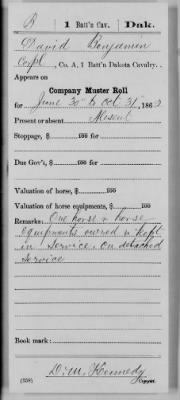 B 1 Batt'n Cav. Dak.
David Benjamin
Corpl, Co. A, 1 Batt'n Dakota Cavalry.
Appears on
Company Muster Roll
for June 30" to Oct. 31", 186
Present or absent Absent
Stoppage, $ 100 for
Due Gov't, $ 100 for
Valuation of horse, $ 100
Valuation of horse equipments, $ 100
Remarks: One horse & horse
equipments owned & kept
in service. On detached
service
Book mark:
D. M. Kennedy
(358) Copyist.